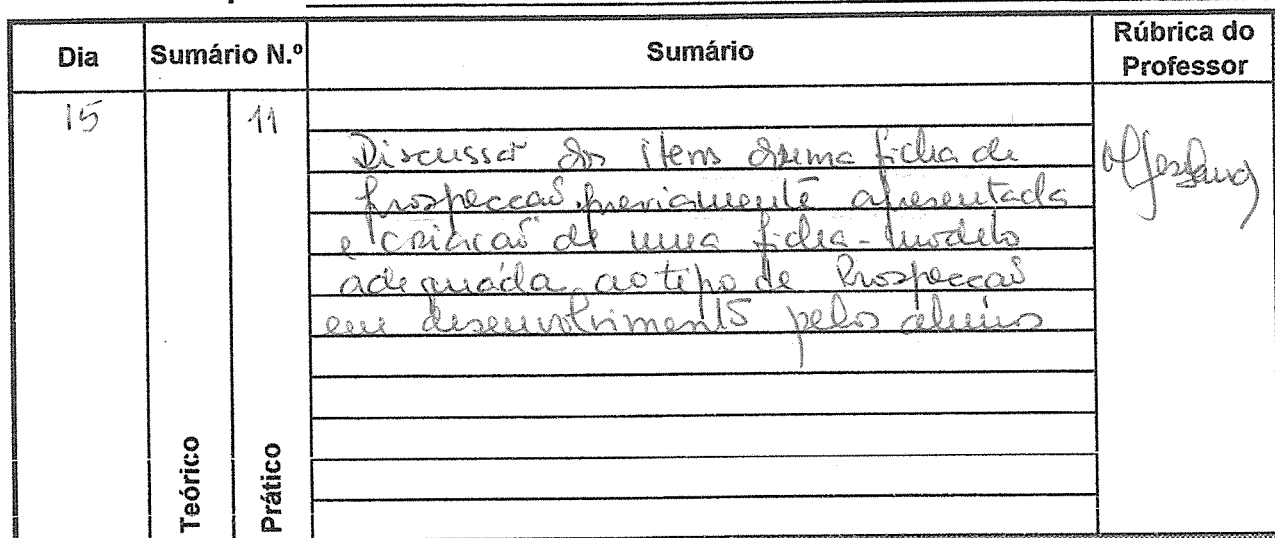 Dia Sumário N.º Sumário Rúbrica do Professor
15 11
Discussão dos itens duma ficha de
prospecção previamente apresentada
e criação de uma ficha-modelo
adequada ao tipo de Prospecção
em desenvolvimento pelos alunos
Teórico
Prático